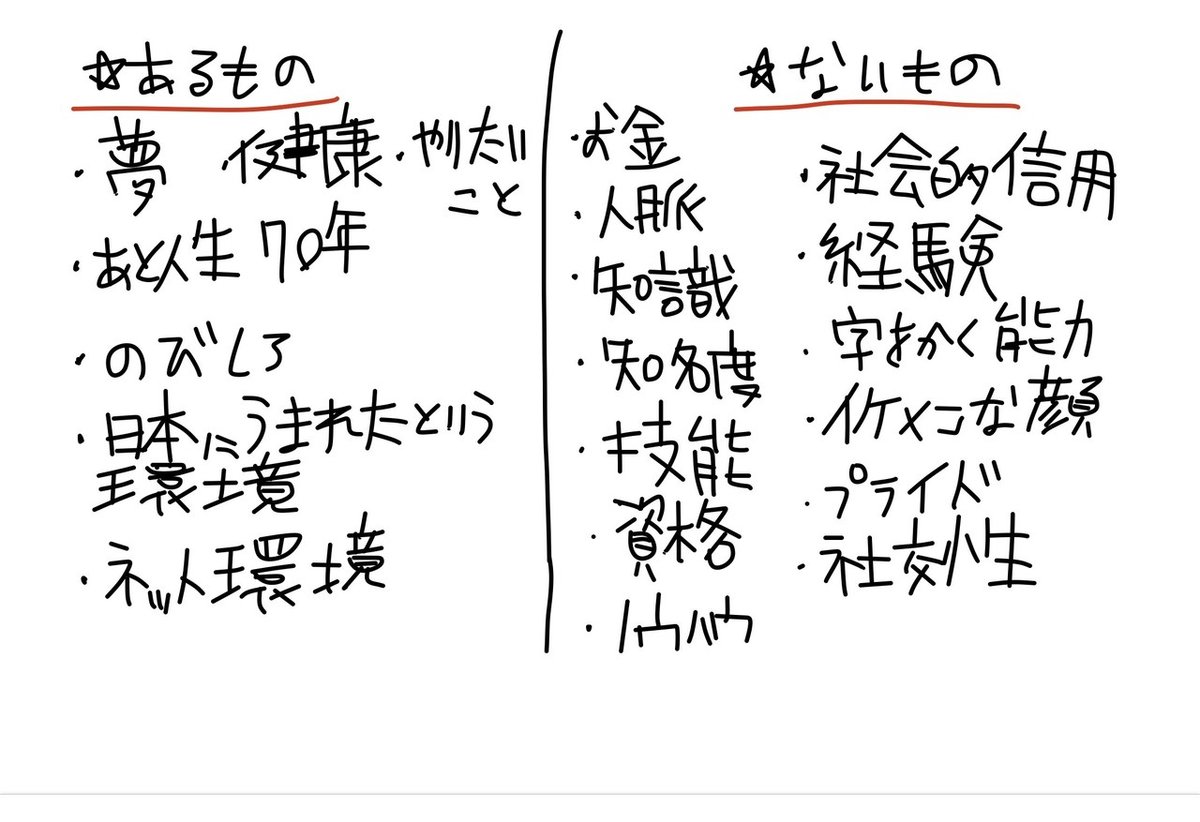 ☆あるもの
・夢 ・健康 ・やりたい
こと
・あと人生70年
・のびしろ
・日本にうまれたという
環境
・ネット環境
☆ないもの
・お金
・人脈
・知識
・知名度
・技能
・資格
・ノウハウ
・社会的信用
・経験
・字をかく能力
・イケメンな顔
・プライド
・社交性